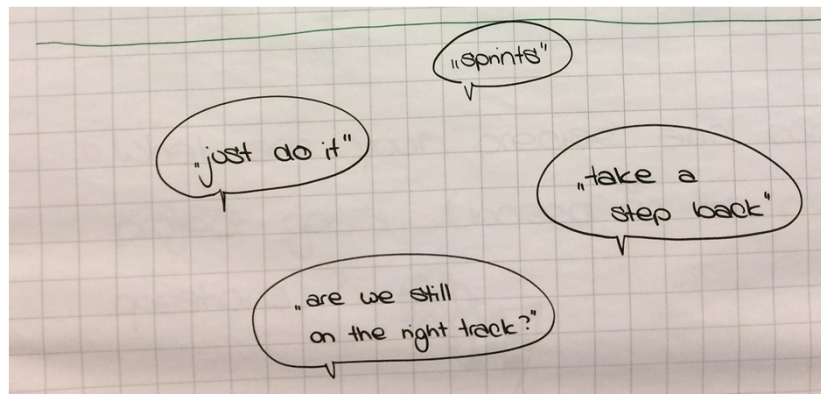 „sprints"
„just do it"
„take a
step back"
„are we still
on the right track?"